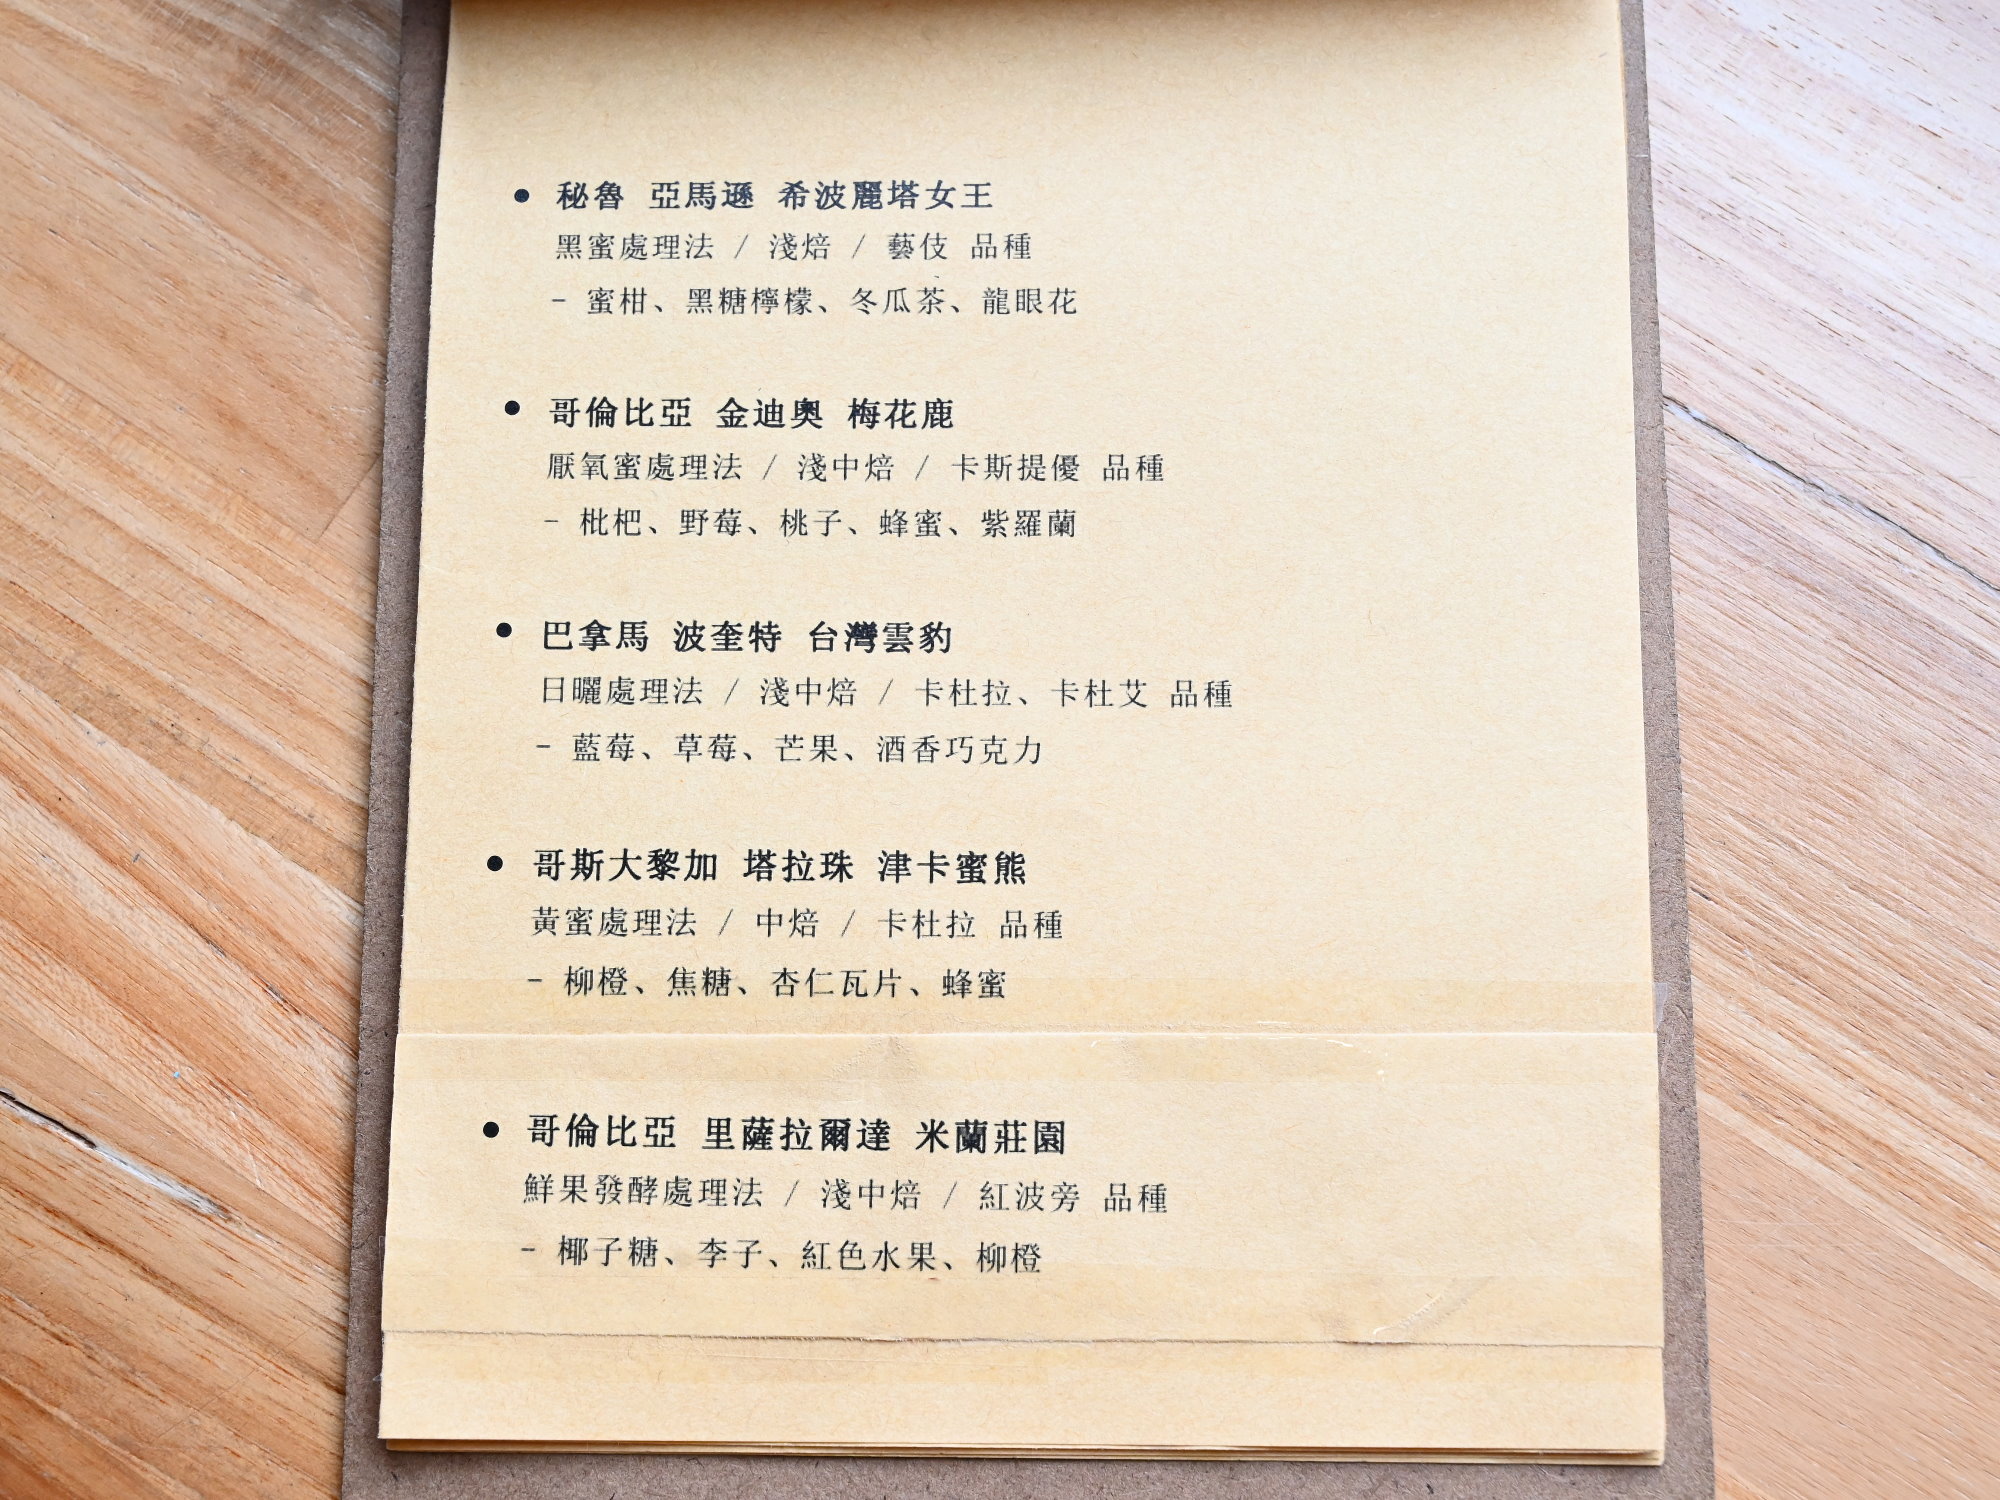 ● 秘魯 亞馬遜 希波麗塔女王
黑蜜處理法 / 淺焙 / 藝伎 品種
– 蜜柑、黑糖檸檬、冬瓜茶、龍眼花
● 哥倫比亞 金迪奧 梅花鹿
厭氧蜜處理法 / 淺中焙 / 卡斯提優 品種
– 枇杷、野莓、桃子、蜂蜜、紫羅蘭
● 巴拿馬 波奎特 台灣雲豹
日曬處理法 / 淺中焙 / 卡杜拉、卡杜艾 品種
– 藍莓、草莓、芒果、酒香巧克力
● 哥斯大黎加 塔拉珠 津卡蜜熊
黃蜜處理法 / 中焙 / 卡杜拉 品種
– 柳橙、焦糖、杏仁瓦片、蜂蜜
● 哥倫比亞 里薩拉爾達 米蘭莊園
鮮果發酵處理法 / 淺中焙 / 紅波旁 品種
– 椰子糖、李子、紅色水果、柳橙